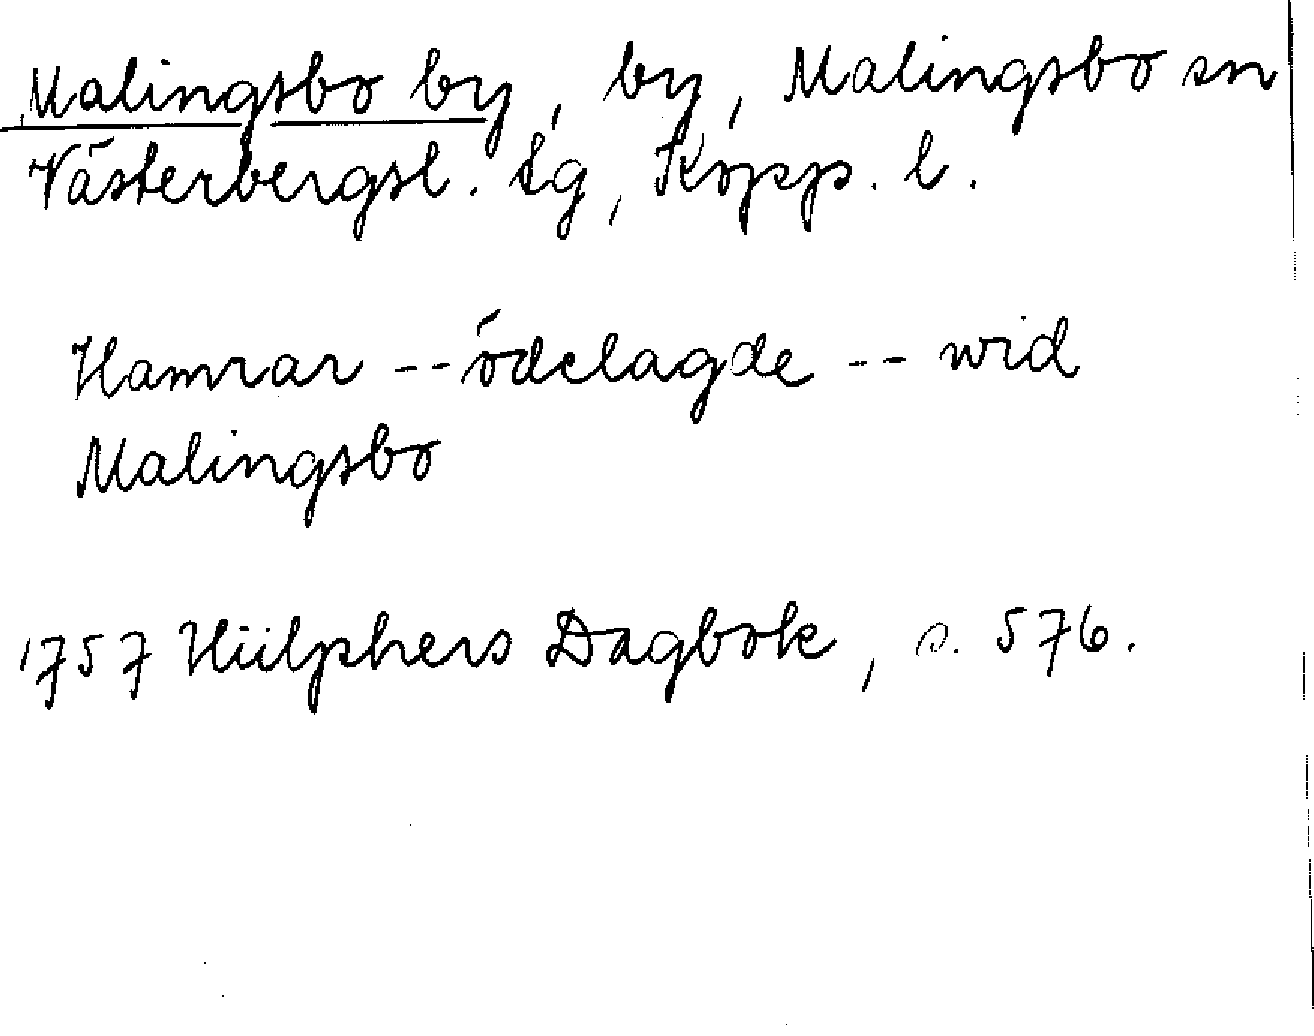 Malingsbo by, by, Malingsbo sn
Västerbergsl. dg, Kopp. l.
Hamrar -- ödelagde -- wid
Malingsbo
1757 Hülphers Dagbok, s. 576.